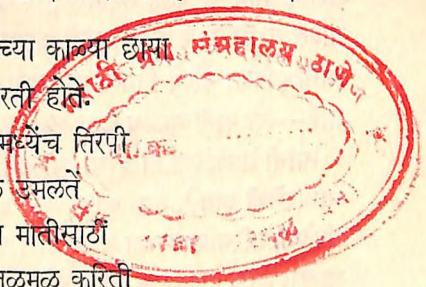 च्या काळ्या छाया
रती होते.
मध्येंच तिरपी
उमलतें
मातीसाठीं
तळमळ करिती
मराठी ग्रंथ संग्रहालय ठाणे